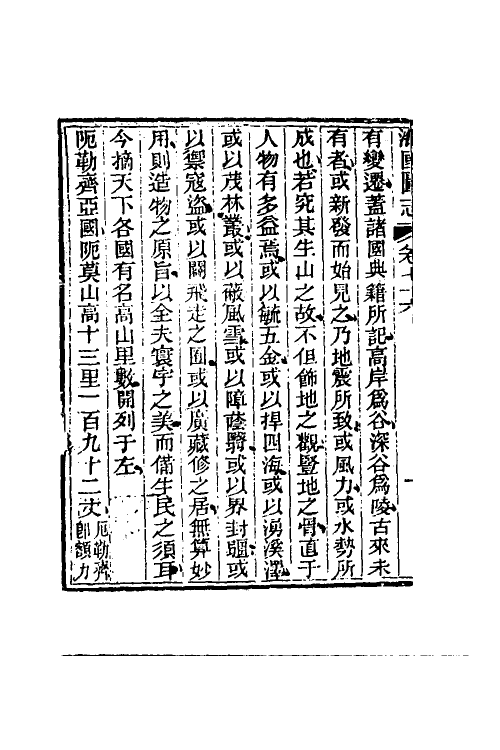 海國圖志 卷七十六
有變遷蓋諸國典籍所記高岸爲谷深谷爲陵古來未
有者或新發而始見之乃地震所致或風力或水勢所
成也若究其生山之故不但飾地之觀豎地之骨直于
人物有多益焉或以毓五金或以捍四海或以湧溪澤
或以茂林叢或以蔽風雪或以障蔭翳或以界封疆或
以禦寇盜或以闢飛走之囿或以廣藏修之居無算妙
用則造物之原旨以全夫寰宇之美而備生民之須耳
今摘天下各國有名高山里數開列于左
阨勒齊亞國阨莫山高十三里一百九十二丈厄勒齊
卽額力